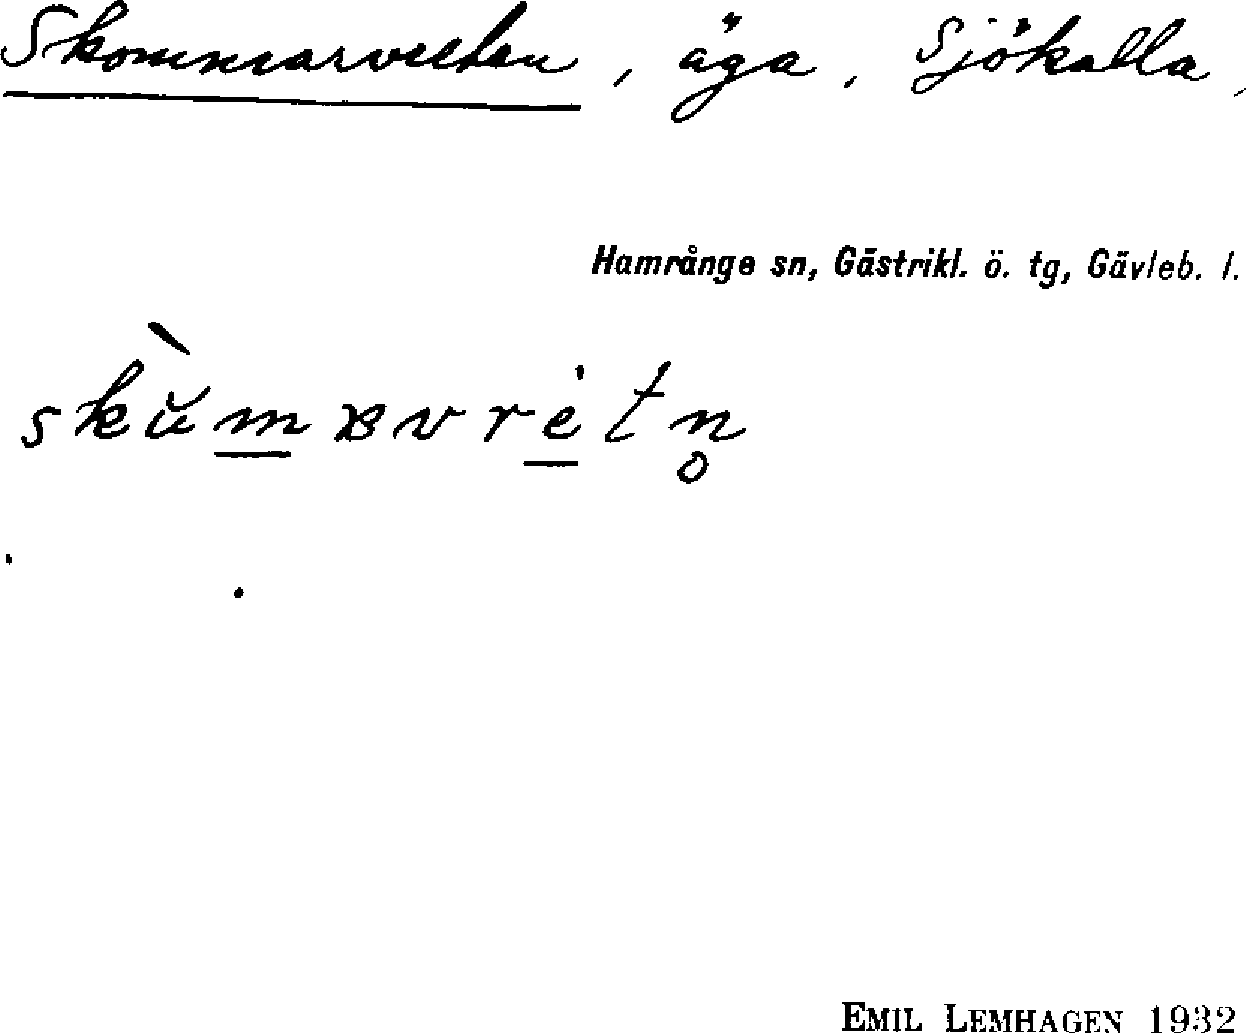 Skommarvreten, äga, Sjökalla,
Hamrånge sn, Gästrikl. ö. tg, Gävleb. l.
EMIL LEMHAGEN 1932